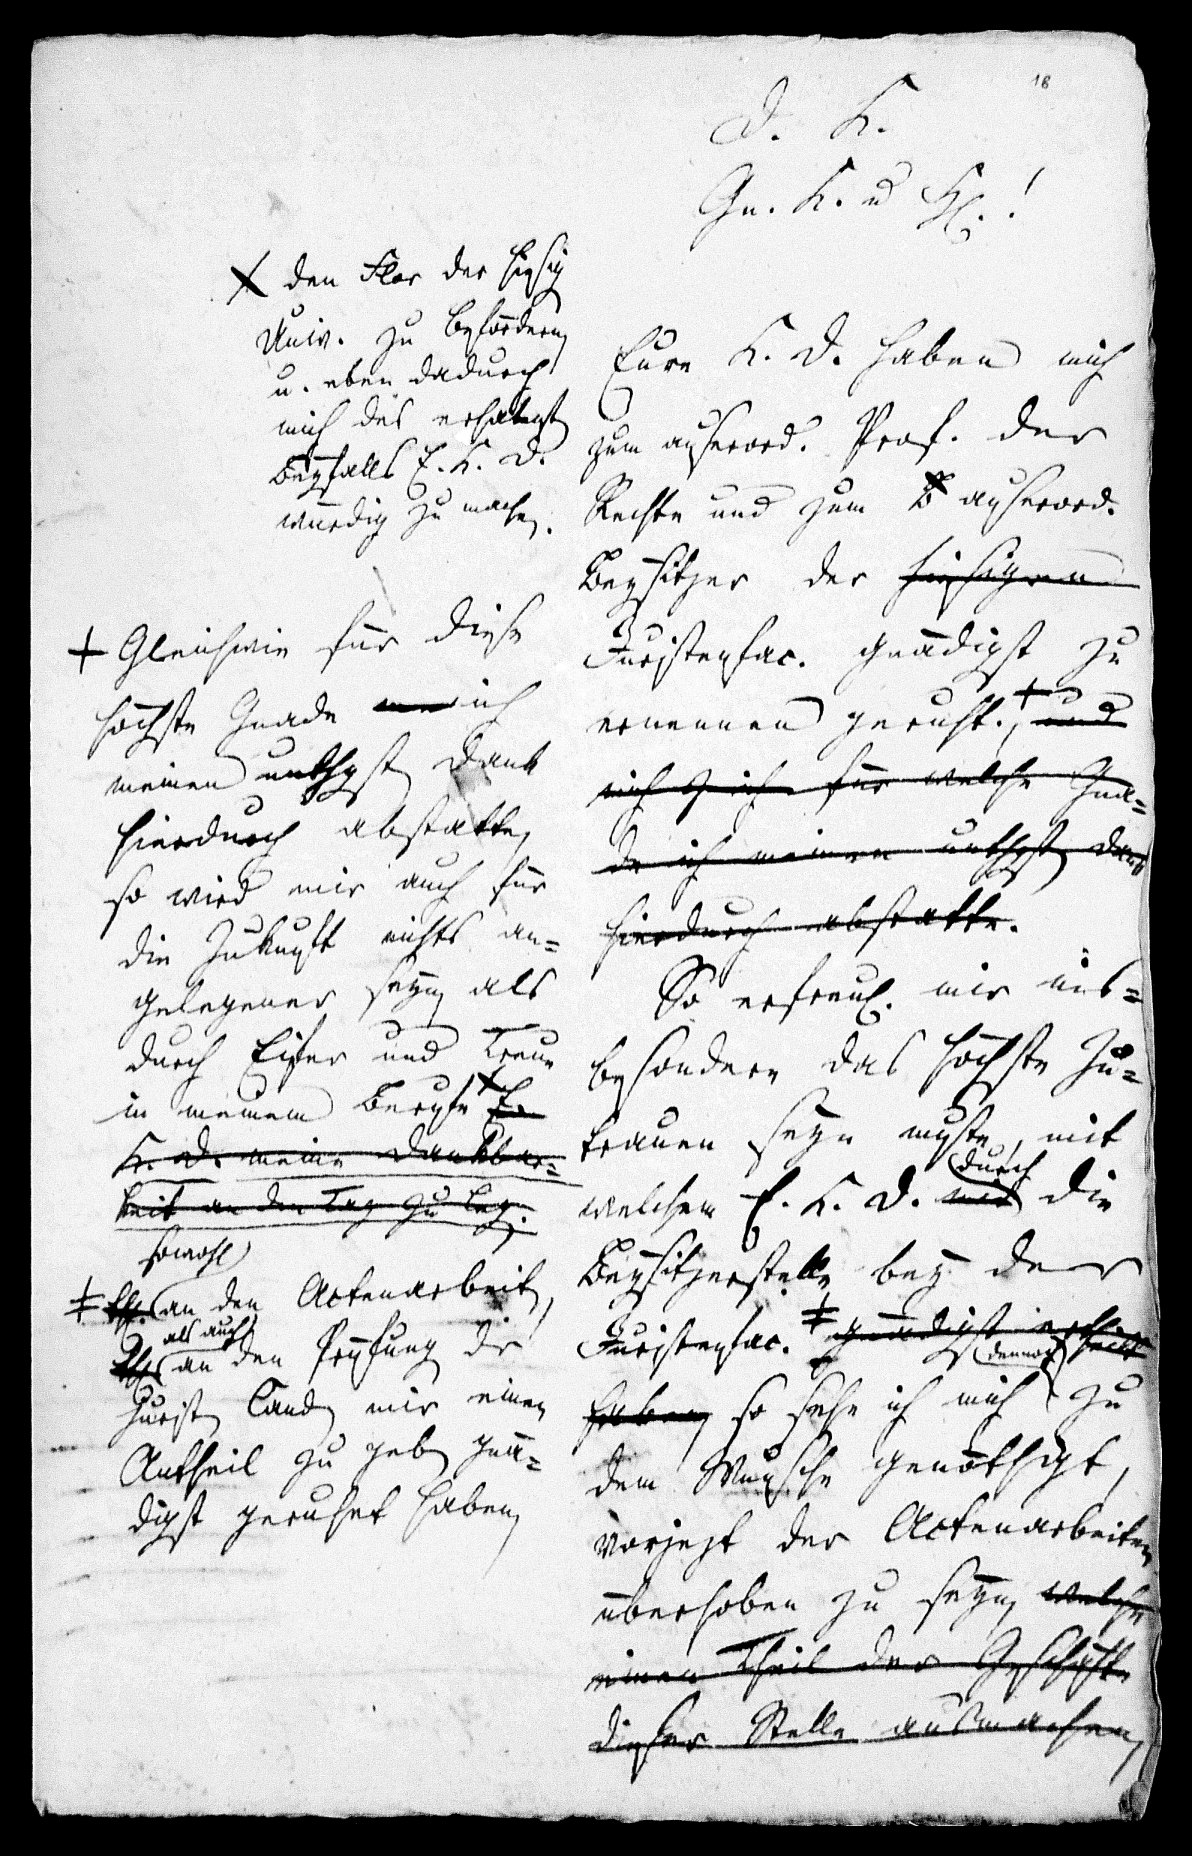 18
D. K.
Gn. K. u H. !
Eure K. D. haben mich
zum auserord. Prof. der
Rechte und zum B auserord.
Beysitzer der hiesigen
Juristenfac. gnädigst zu
ernennen geruht. + , und
mich für welche Gna=
de ich meinen unthgst Dank
hierdurch abstatte.
So erfreul. mir ins=
besondere das höchste Zu=
trauen seyn muste, mit
welchem E. K. D. mit durch die
Beysitzerstelle bey der
Juristenfac. ǂ gnädigst ertheilt
haben so sehe ich mich dennoch zu
dem Wunsche genöthigt,
vorjezt der Actenarbeiten
überhoben zu seyn, welche
einen Theil der Geschäfte
dieser Stelle ausmachen,
X den Flor der hiesig
Univ. zu befördern
u. eben dadurch
mich des erhabnst
Beyfalls E. K. D.
würdig zu machen.
+ Gleichwie für diese
höchste Gnade ich
meinen unthgst Dank
hierdurch abstatte,
so wird mir auch für
die Zukunft nichts an=
gelegener seyn als
durch Eifer und Treue
in meinem Berufe X E.
K. D. meine Dankbar=
keit an den Tag zu leg.
sowohl
ǂ an den Actenarbeit,
als auch
an den Prüfung der
Jurist Cand mir einen
Antheil zu geb gnä=
digst geruhet haben,